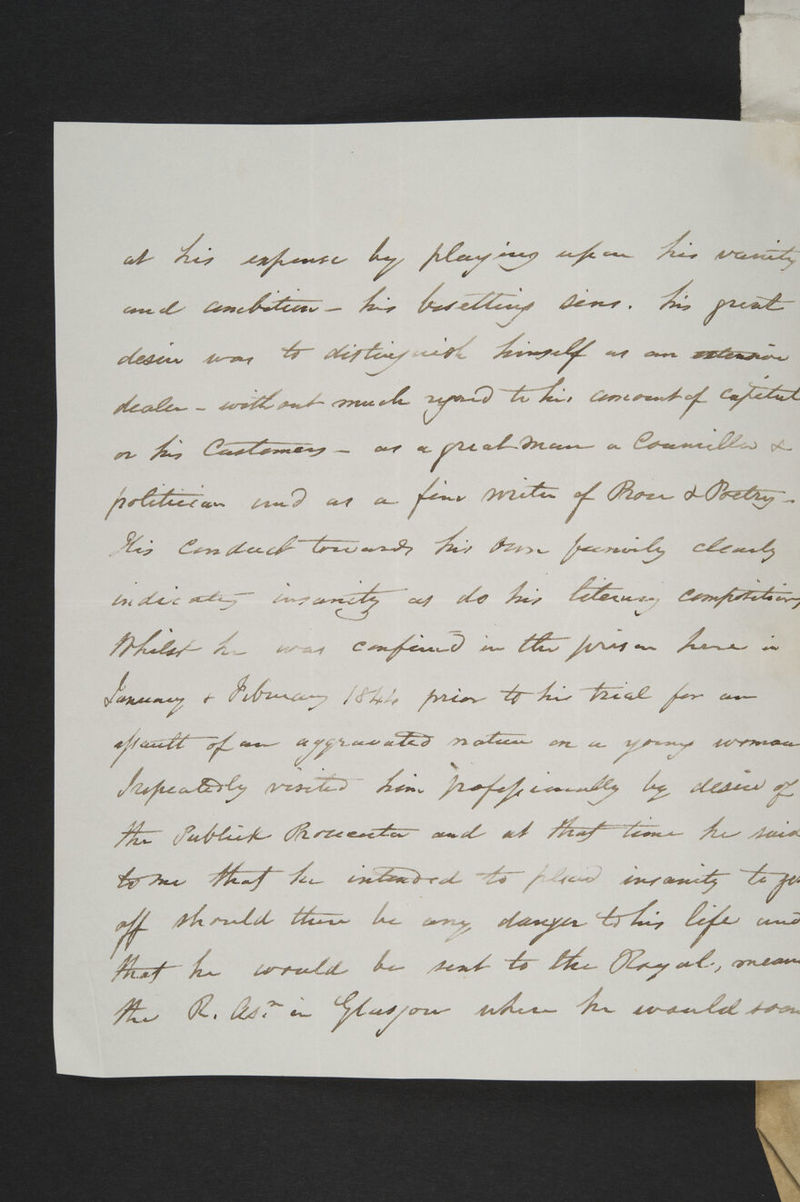 at his expense by playing upon his vanity
and ambition – his besetting sins. his great
desire was to distinguish himself as an extensive
dealer – without much regard to his amount of capital
or his Customers – as a great man a Councillor &
politician and as a fine writer of Prose & Poetry –
His Conduct towards his own family clearly
indicates insanity as do his literary compositions
Whilst he was confined in the prison here in
January & February 1844 prior to his trial for an
assault of an aggravated nature on a young woman
I repeatedly visited him professionally by desire of
the Publick Prosecutor and at that time he said
to me that he intended to plead insanity to get
off should there be any danger to his life and
that he would be sent to the Royal, mean
the R. Asm in Glasgow where he would soon